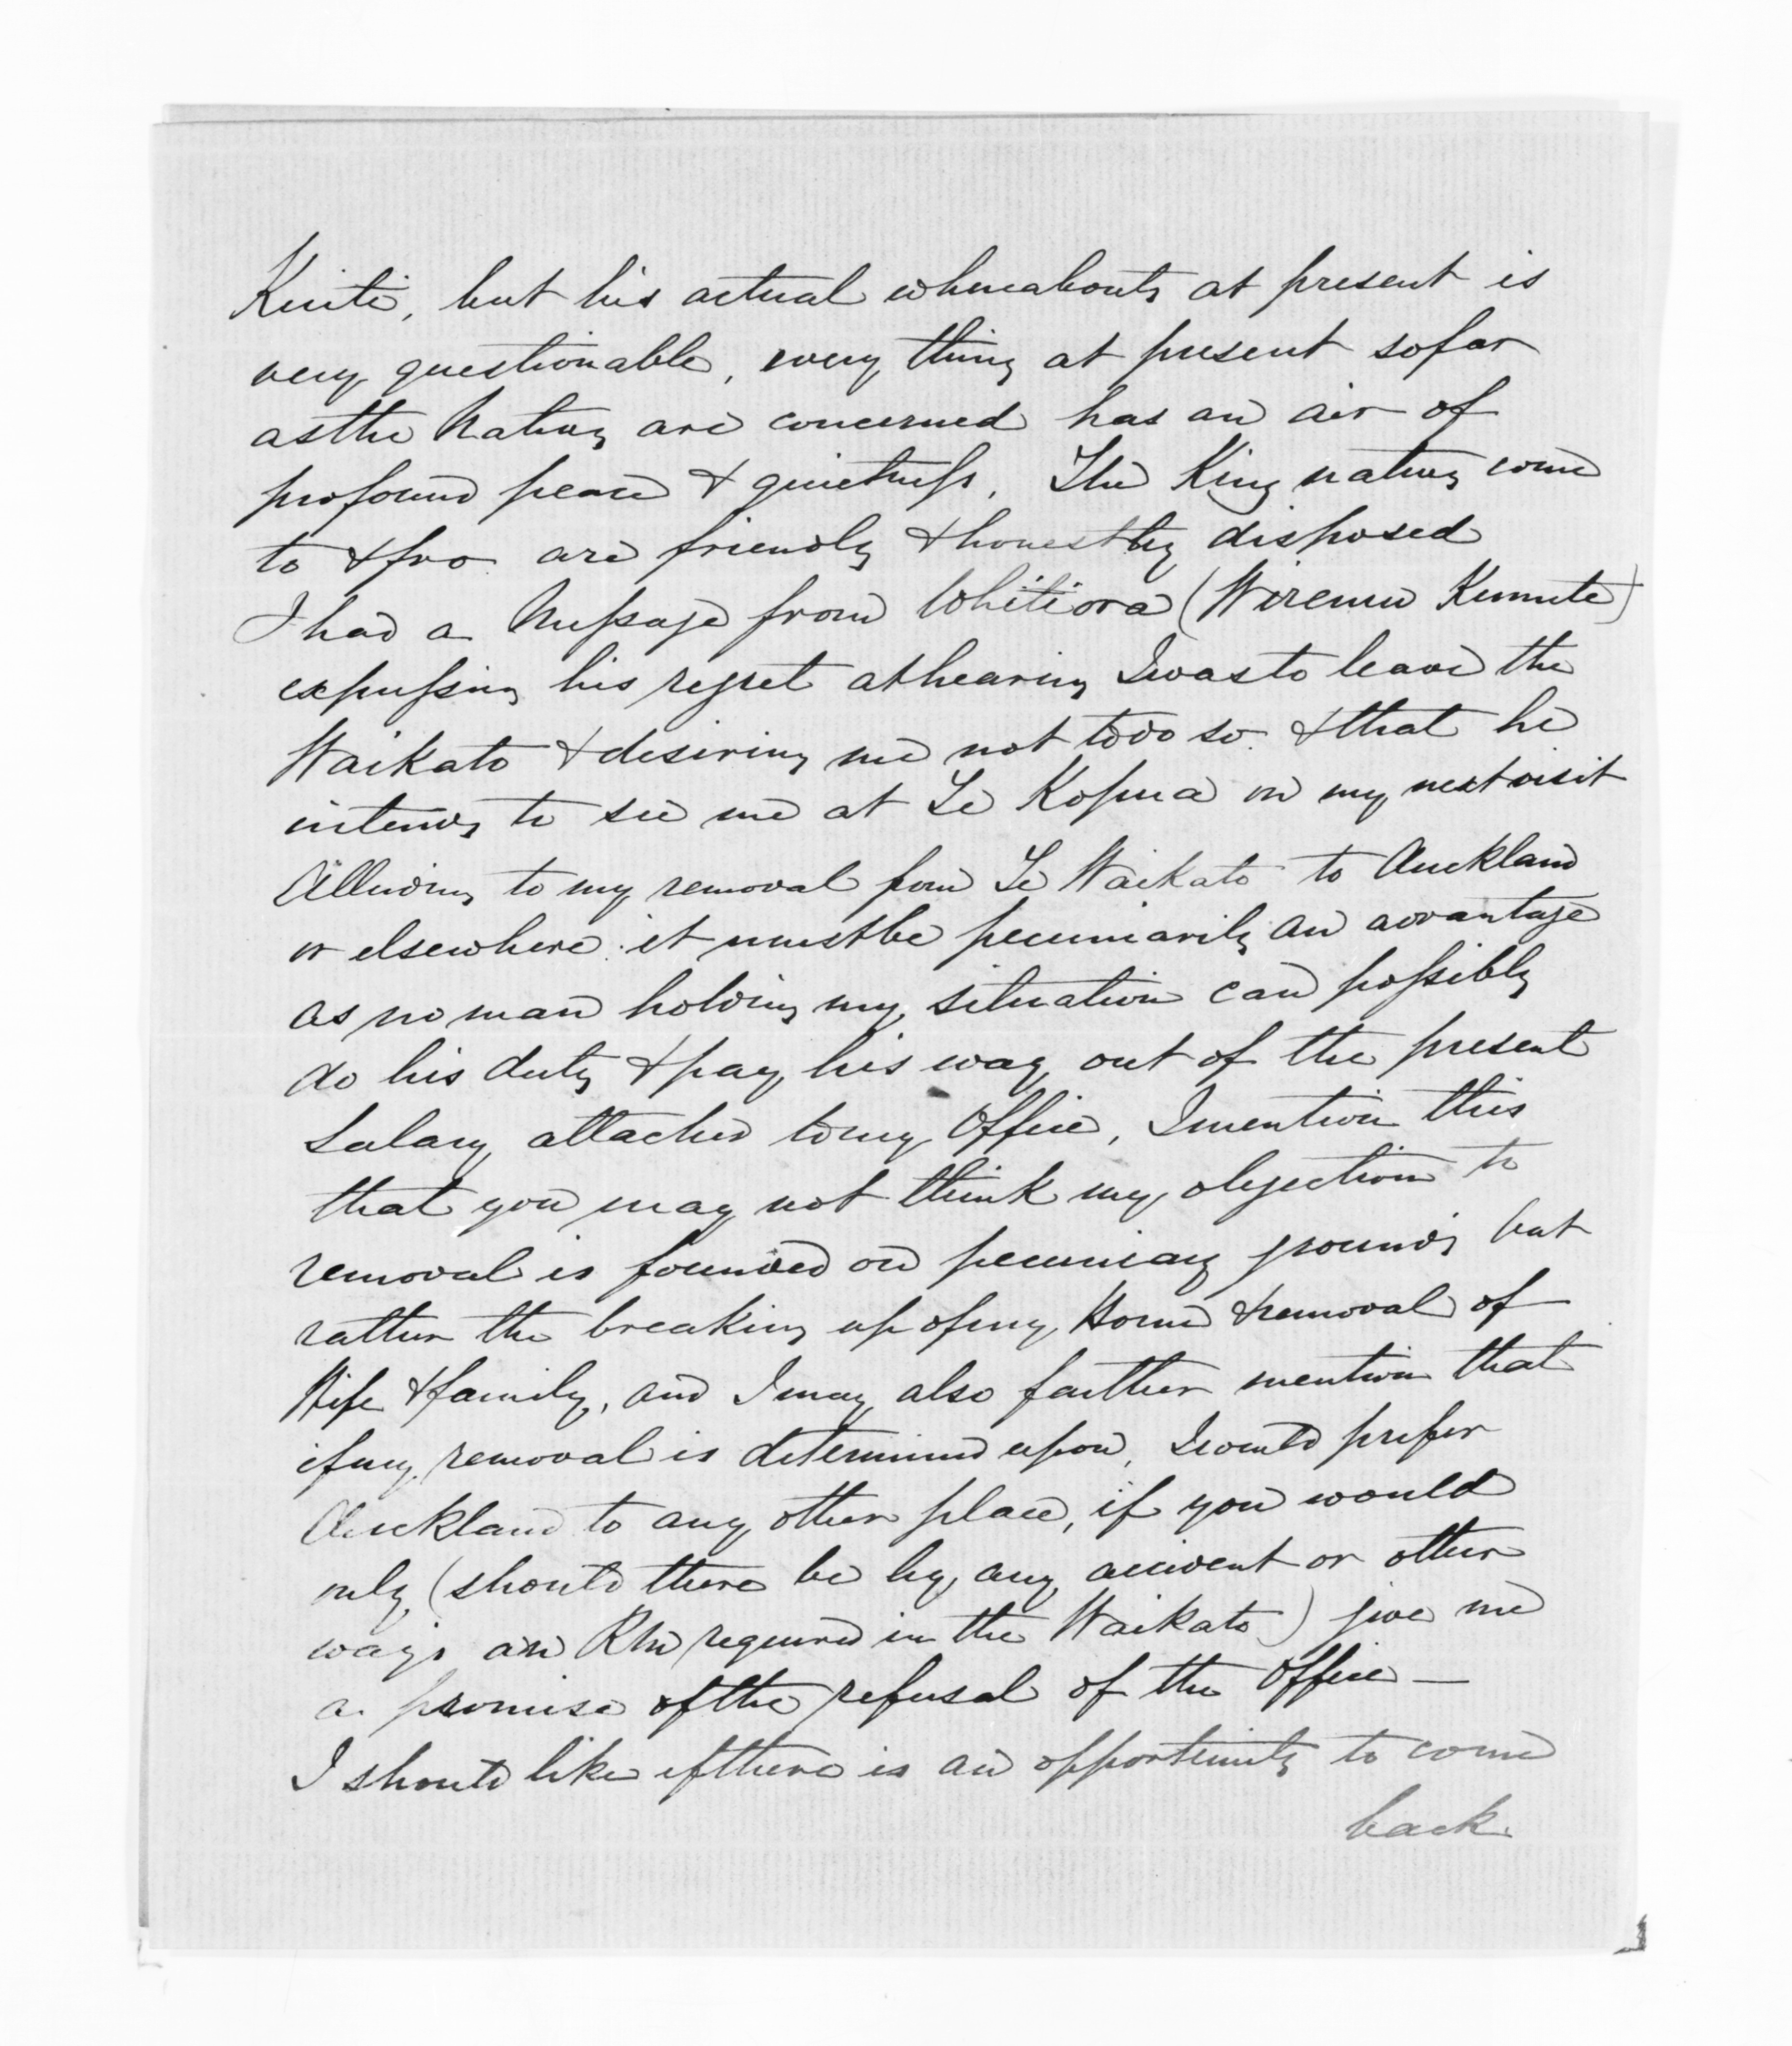 Kuiti, but his actual whereabouts at present is
very questionable, every thing at present so far
as the Natives are concerned has an air of
profound peace & quietness, The King natives come
to & fro are friendly & honestly disposed
I had a Message from Whitiora (Wiremu Kumete)
expressing his regret at hearing I was to leave the
Waikato & desiring me not to do so. & that he
intends to see me at Te Kopua on my next visit
Alluding to my removal from Te Waikato to Auckland
or elsewhere. it must be pecuniarily an advantage
as no man holding my situation can possibly
do his duty & pay his way out of the present
Salary attached to my Office, I mention this
that you may not think my objection to
removal is founded on pecuniary grounds but
rather the breaking up of my Home & removal of
Wife & family, and I may also further mention that
if my removal is determined upon, I would prefer
Auckland to any other place, if you would
only (should there be by any accident or other
ways an RM required in the Waikato) give me
a promise of the refusal of the Office —
I should like if there is an opportunity to come
back